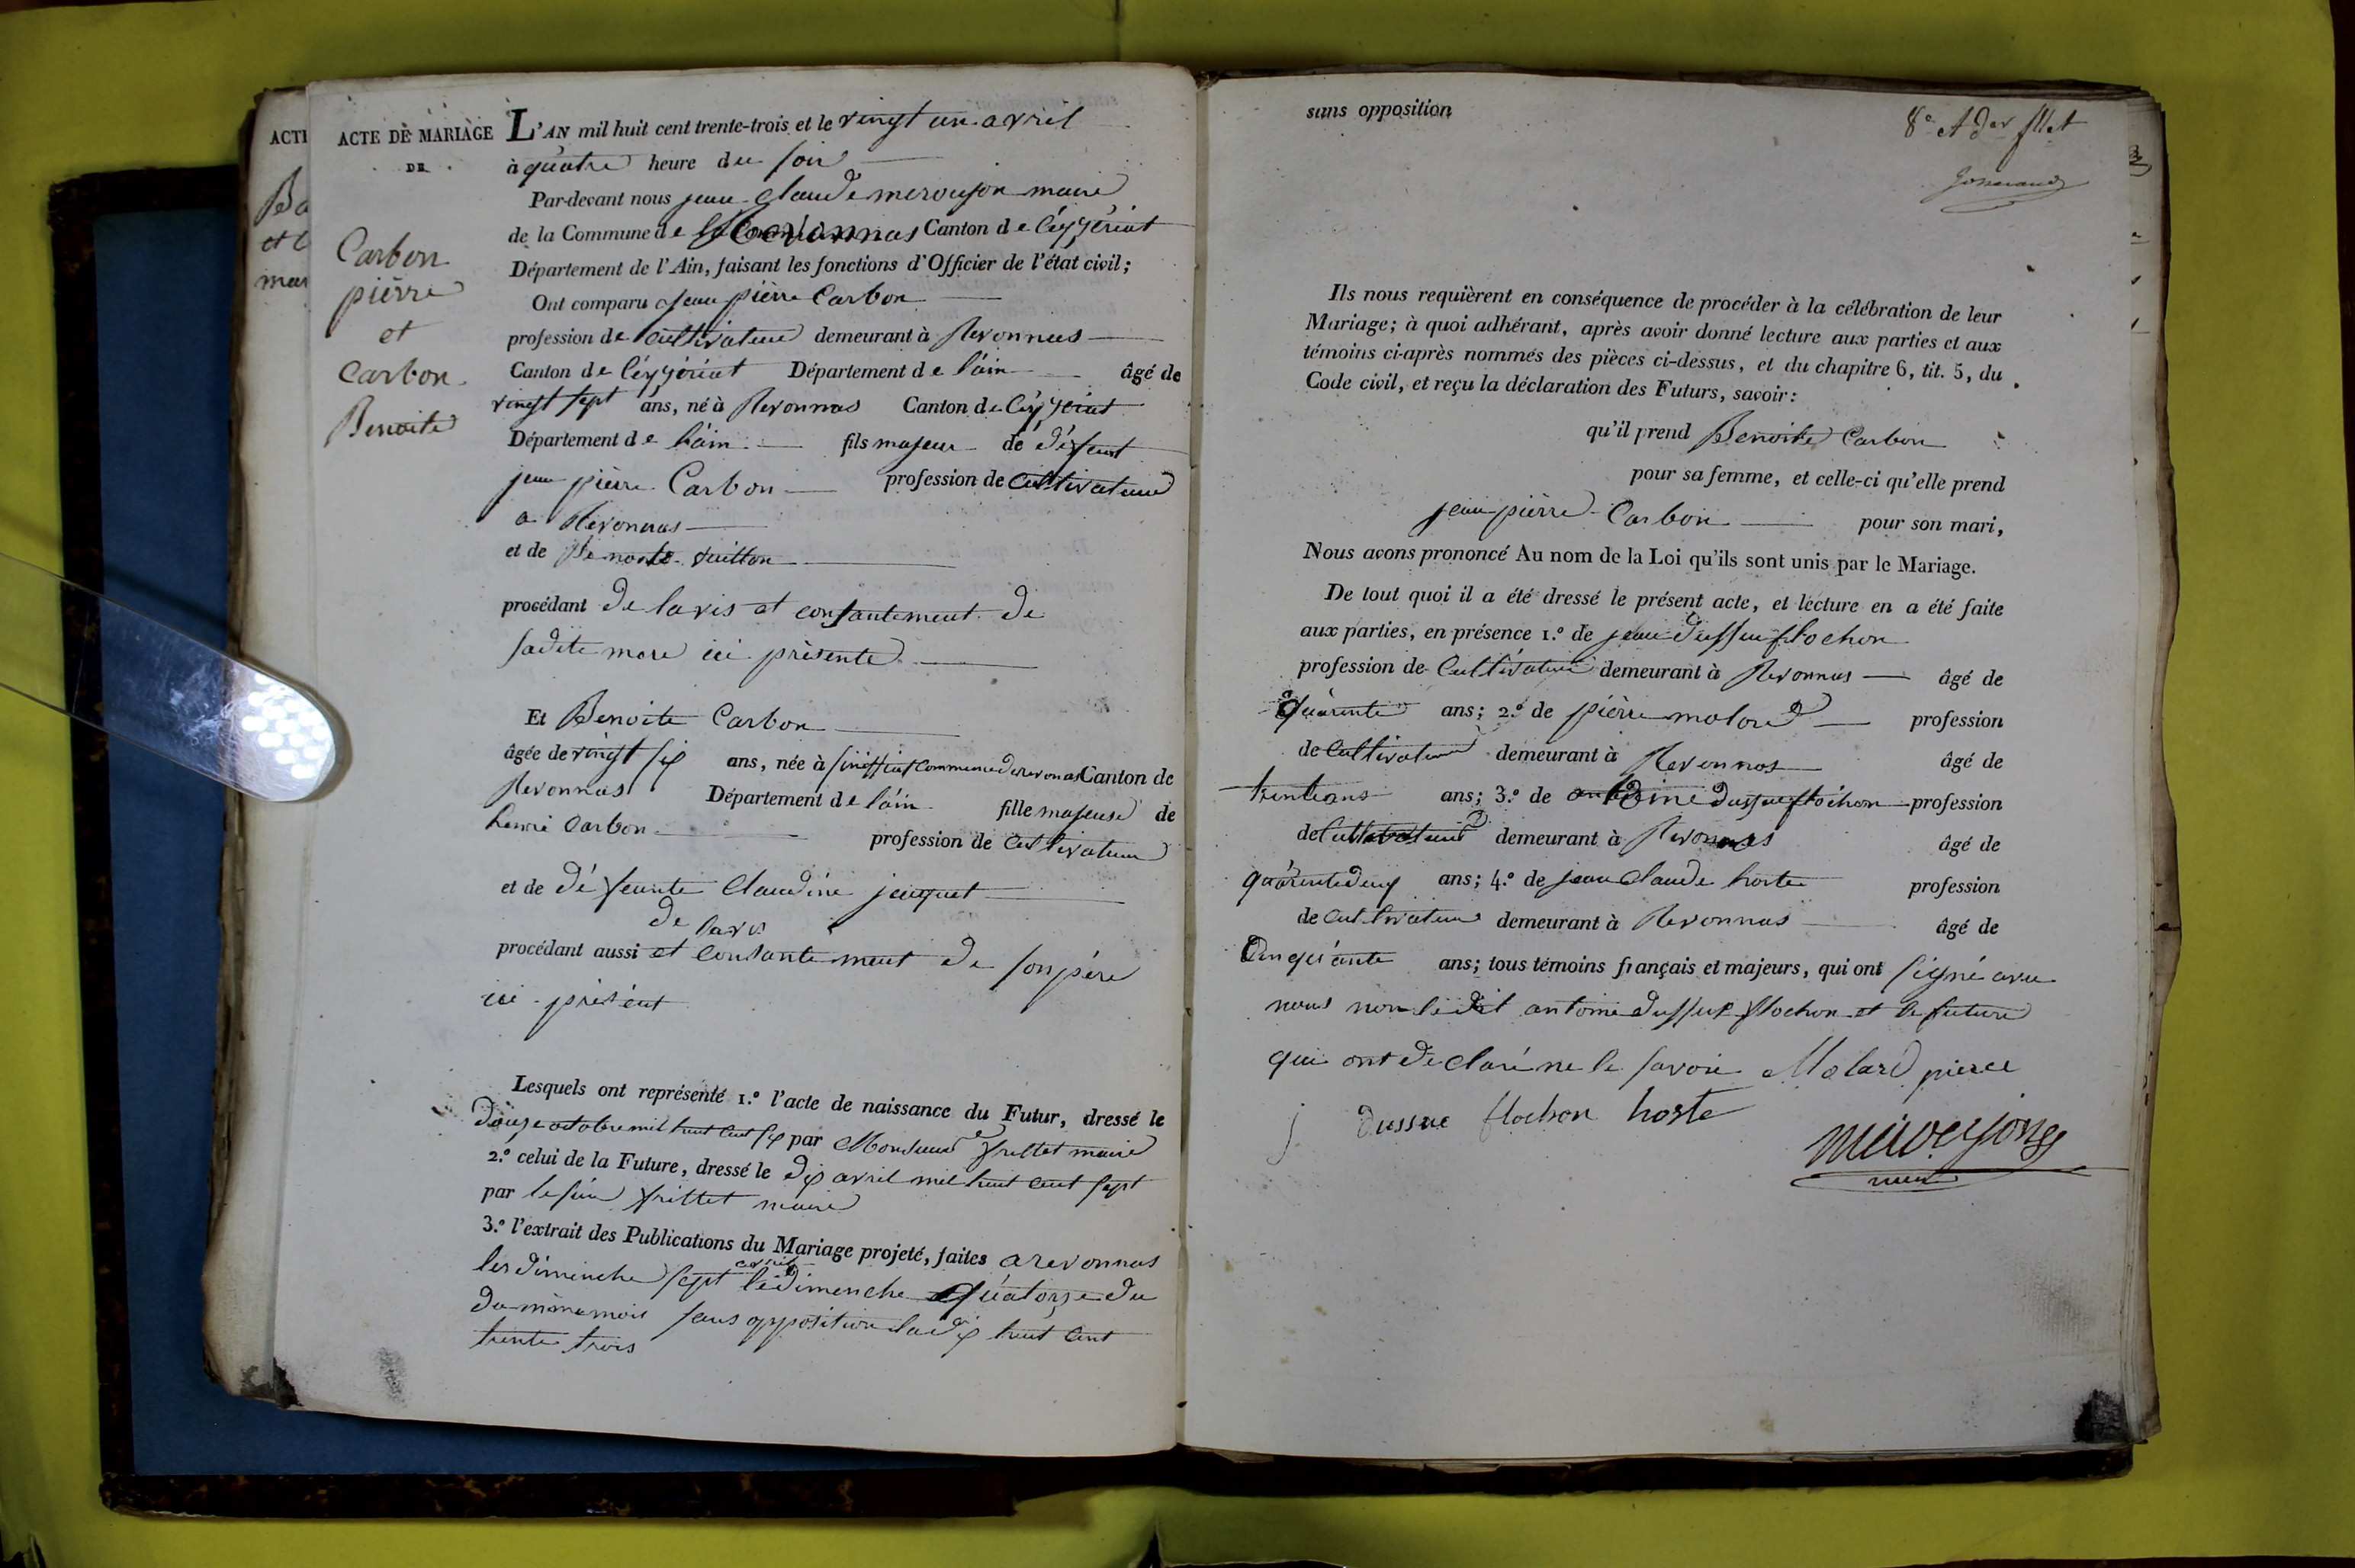 ACTI
Ba
et
mar
ACTE DE MARIAGE
DE
Carbon
pièrre
et
Carbon
Benoite
L'AN mil huit cent trente-trois et le vingt un avril
à quatre heure du soir
Par-devant nous jean Claude meroujon maire
de la Commune de Revonnas Canton de Céyzériat
Département de l'Ain, faisant les fonctions d'Officier de l'état civil;
Ont comparu Jean pièrre Carbon
profession de Cultivateur demeurant à Revonnas
Canton de Céyzériat Département de l'ain âgé de
vingt sept ans, né à Revonnas Canton de Céyzériat
Département de l'ain fils majeur de défeunt
jean pièrre Carbon profession de Cultivateur
a Revonnas
et de Benoite vuitton
procédant de lavis et consantement de
sadite mere ici présente
Et Benoite Carbon
âgée de vingt six ans, née à commune de revonas Canton de
Revonnas Département de l'ain fille majeuse de
henri Carbon profession de Cultivateur
et de défeunte Claudine jauquet
de lavis
procédant aussi et consantement de son père
ici présent
Lesquels ont représenté 1.º l'acte de naissance du Futur, dressé le
douze octobre mil huit cent six par Monsieur frillet maire
2.º celui de la Future, dressé le dix avril mil huit cent sept
par le sieur frillet maire
3.º l'extrait des Publications du Mariage projeté, faites a revonnas
avril
les dimenche sept le dimenche quatorze du
du même mois sans opposition la dix huit cent
trente trois
sans opposition
8e et der
Ils nous requièrent en conséquence de procéder à la célébration de leur
Mariage; à quoi adhérant, après avoir donné lecture aux parties et aux
témoins ci-après nommés des pièces ci-dessus, et du chapitre 6, tit. 5, du
Code civil, et reçu la déclaration des Futurs, savoir:
qu'il prend Benoite Carbon
pour sa femme, et celle-ci qu'elle prend
jean pièrre Carbon pour son mari,
Nous avons prononcé Au nom de la Loi qu'ils sont unis par le Mariage.
De tout quoi il a été dressé le présent acte, et lecture en a été faite
aux parties, en présence 1.º de jean dussue flochon
profession de Cultivateur demeurant à Revonnas âgé de
quarente ans; 2.º de pièrre molard profession
de Cultivateur demeurant à Revonnas âgé de
trente ans ans; 3.º de antoine dussue flochon profession
de Cultivateur demeurant à Revonnas âgé de
quarente deux ans; 4.º de jean Claude hoste profession
de Cultivateur demeurant à Revonnas âgé de
Cinquante ans; tous témoins français et majeurs, qui ont signé avec
nous non ledit antoine dussue flochon et le future
qui ont déclaré ne le savoir Molard pierre
j dussue flochon hoste